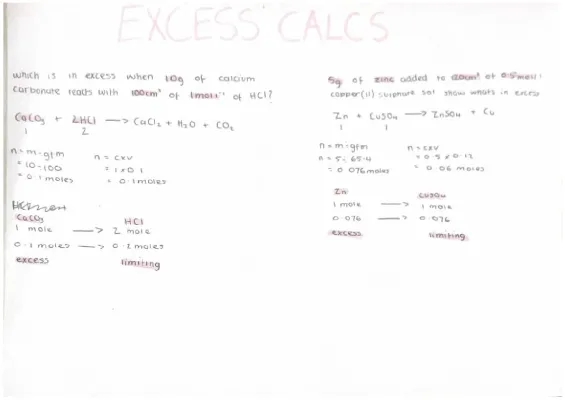 EXCESS CALCS
which is in excess when 10g of calcium
carbonate reacts with 100cm³ of 1moll⁻¹ of HCl?
CaCO₃ + 2HCl → CaCl₂ + H₂O + CO₂
1 2
n = m÷gfm n = cxv
= 10÷100 = 1x0.1
= 0.1 moles = 0.1 moles
CaCO₃ HCl
1 mole → 2 mole
0.1 moles → 0.2 moles
excess limiting
5g of zinc added to of
copper(II) sulphate sol show whats in excess
Zn + CuSO₄ → ZnSO₄ + Cu
1 1
n = m÷gfm n = cxv
n = 5÷65.4 = 0.5 x 0.12
= 0.076 moles = 0.06 moles
Zn CuSO₄
1 mole → 1 mole
0.076 → 0.076
excess limiting